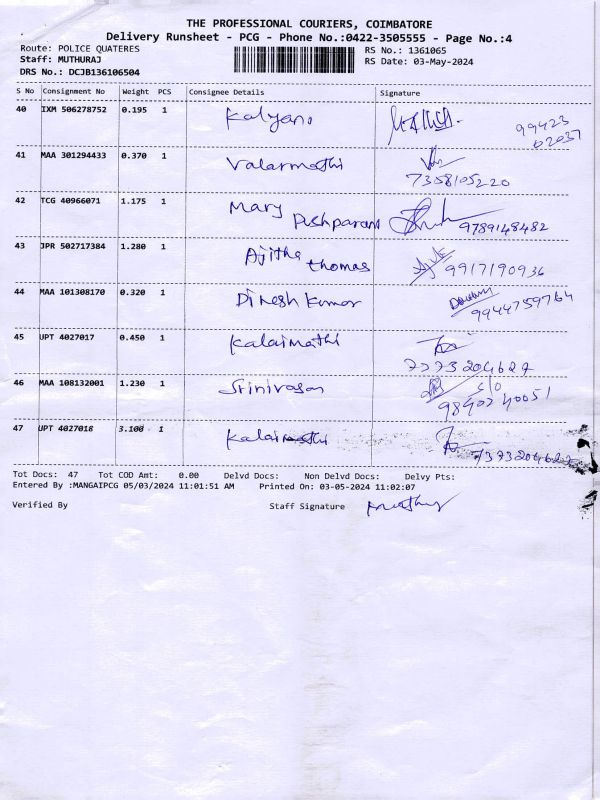 THE PROFESSIONAL COURIERS, COIMBATORE
Delivery Runsheet - PCG - Phone No.:0422-3505555 - Page No.:4
Route: POLICE QUATERES RS No.: 1361065
Staff: MUTHURAJ RS Date: 03-May-2024
DRS No.: DCJB136106504
S No Consignment No Weight PCS Consignee Details Signature
40 IXM 506278752 0.195 1 Kalyani 99423
02037
41 MAA 301294433 0.370 1 Valarmathi
7358105220
42 TCG 40966071 1.175 1 Mary Pushparani 9789148482
43 JPR 502717384 1.280 1 Ajitha thomas 9917190936
44 MAA 101308170 0.320 1 Dinesh Kumar 9944759764
45 UPT 4027017 0.450 1 Kalaimathi
7373204627
46 MAA 108132001 1.230 1 Srinivasan c/o
9840240051
47 UPT 4027018 3.100 1 Kalaimathi
7373204627
Tot Docs: 47 Tot COD Amt: 0.00 Delvd Docs: Non Delvd Docs: Delvy Pts:
Entered By :MANGAIPCG 05/03/2024 11:01:51 AM Printed On: 03-05-2024 11:02:07
Verified By Staff Signature